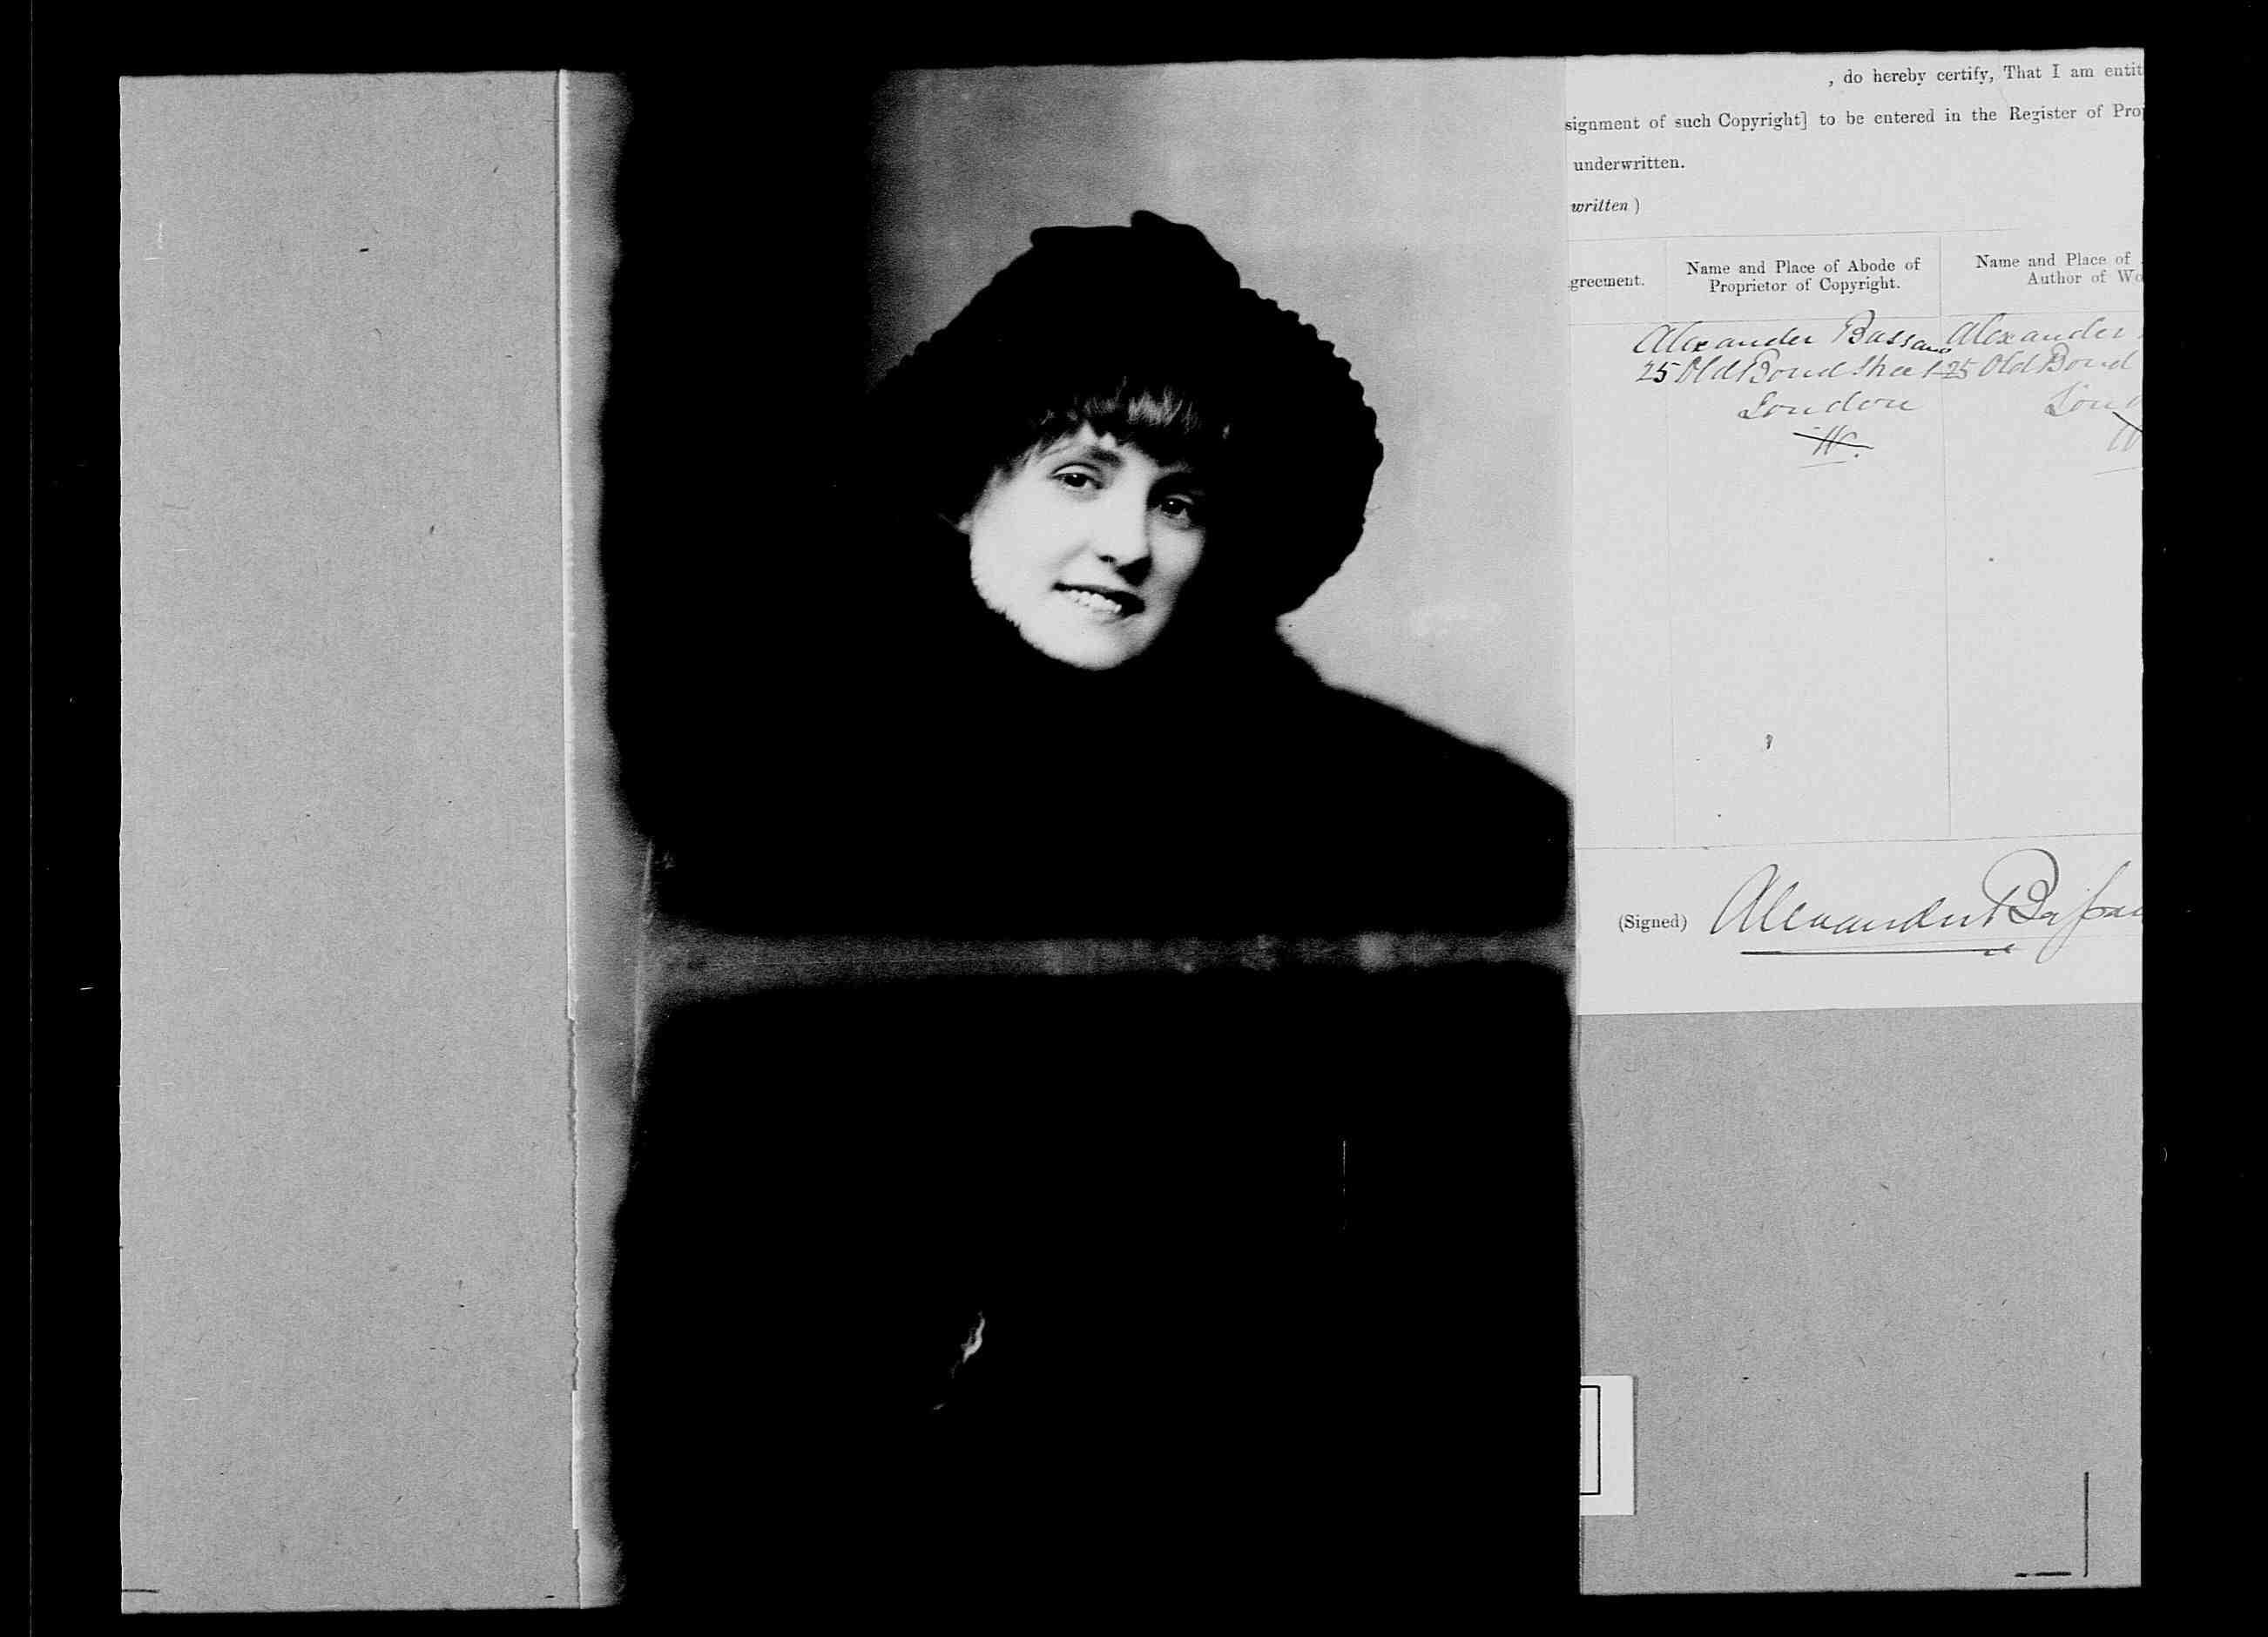 , do hereby certify, That I am entit
signment of such Copyright] to be entered in the Register of Pro
underwritten.
written )
greement.
Name and Place of Abode of
Proprietor of Copyright.
Name and Place of
Author of Wo
Alexander Bassano
25 Old Bond Street
London
W.
Alexander
25 Old Bond
Lond
W
(Signed) Alexander Bassan